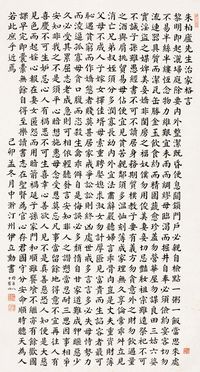 朱柏廬先生治家格言
黎明即起灑掃庭除要內外整潔既昏便息關鎖門戶必親自檢點一粥一飯當思來處
不易半絲半縷恒念物力維艱宜未雨而綢繆毋臨渴而掘井自奉必須儉約宴客切勿
流連器具質而潔瓦缶勝金玉飲食約而精園蔬愈珍饈勿營華屋勿謀良田三姑六婆
實淫盜之媒婢美妾嬌非閨房之福僮僕勿用俊美妻妾切忌豔粧祖宗雖遠祭祀不可
不誠子孫雖愚經書不可不讀居身務期質樸教子要有義方莫貪意外之財勿飲過量
之酒與肩挑貿易毋佔便宜見貧苦親鄰須多溫恤刻薄成家理無久享倫常乖舛立見
消亡兄弟叔姪須分多潤寡長幼內外宜法肅辭嚴聽婦言乖骨肉豈是丈夫重資財薄
父母不成人子嫁女擇佳婿毋索重聘娶媳求淑女勿計厚奩見富貴而生諂容者最可
恥遇貧窮而作驕態者賤莫甚居家戒爭訟訟則終凶處世戒多言言多必失毋恃勢力
而凌逼孤寡毋貪口腹而恣殺生禽乖僻自是悔誤必多頹惰自甘家道難成狎暱惡少
久必受其累屈志老成急則可相依輕聽發言安知非人之譖愬當忍耐三思因事相爭
焉知非我之不是須平心暗想施惠無念受恩莫忘凡事當留餘地得意不宜再往人有
喜慶不可生妒忌心人有禍患不可生喜幸心善欲人見不是真善惡恐人知便是大惡
見色而起淫心報在妻女匿怨而用暗箭禍延子孫家門和順雖饔飧不繼亦有餘歡國
課早完即囊橐無餘自得至樂讀書志在聖賢為官心存君國守分安命順時聽天為人
若此庶乎近焉
卯孟冬月中浣汀州立勳書